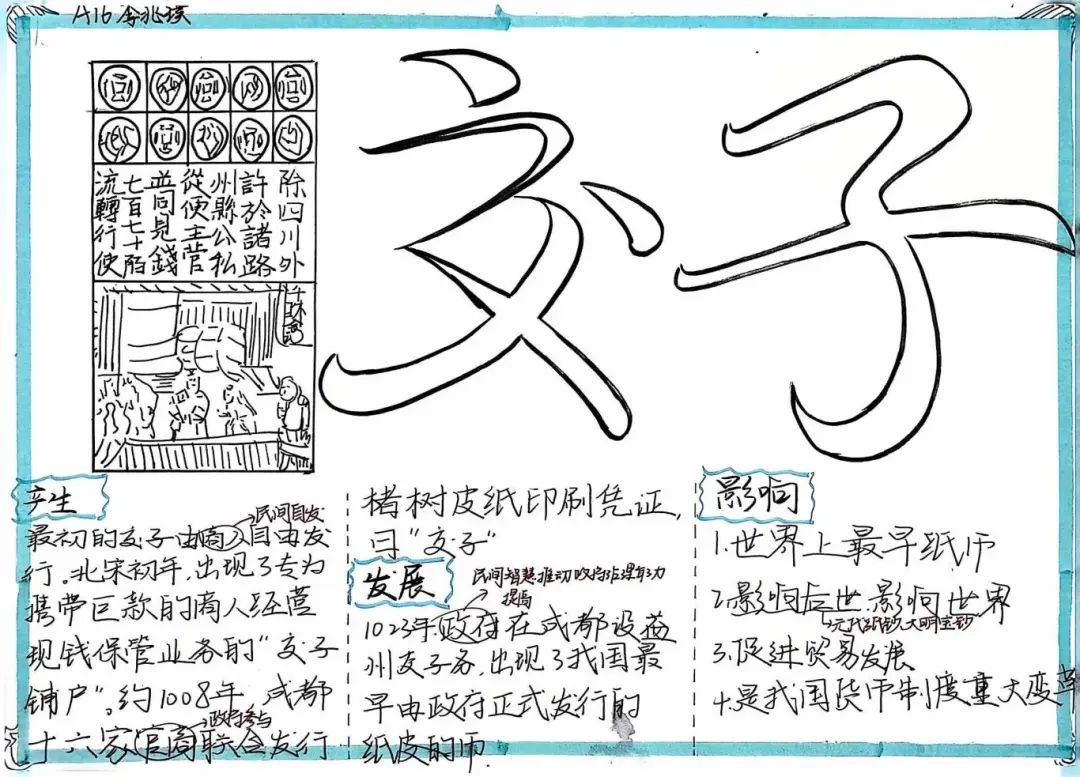 1416 李兆瑛
交子
除四川外
許於諸路
州縣公私
從便主管
並同見錢
七百七十陌
流轉行使
千斯仓
产生
民间自发
最初的交子由商人自由发
行。北宋初年,出现了专为
携带巨款的商人经营
现钱保管业务的“交子
铺户”。约1008年,成都
政府参与
十六家官商联合发行
楮树皮纸印刷凭证,
曰“交子”
发展
民间智慧推动政府治理能力
提高
1023年政府在成都设益
州交子务,出现了我国最
早由政府正式发行的
纸皮的币
影响
1.世界上最早纸币
2.影响后世.影响世界
元代纸钞、大明宝钞
3.促进贸易发展
4.是我国货币制度重大变革